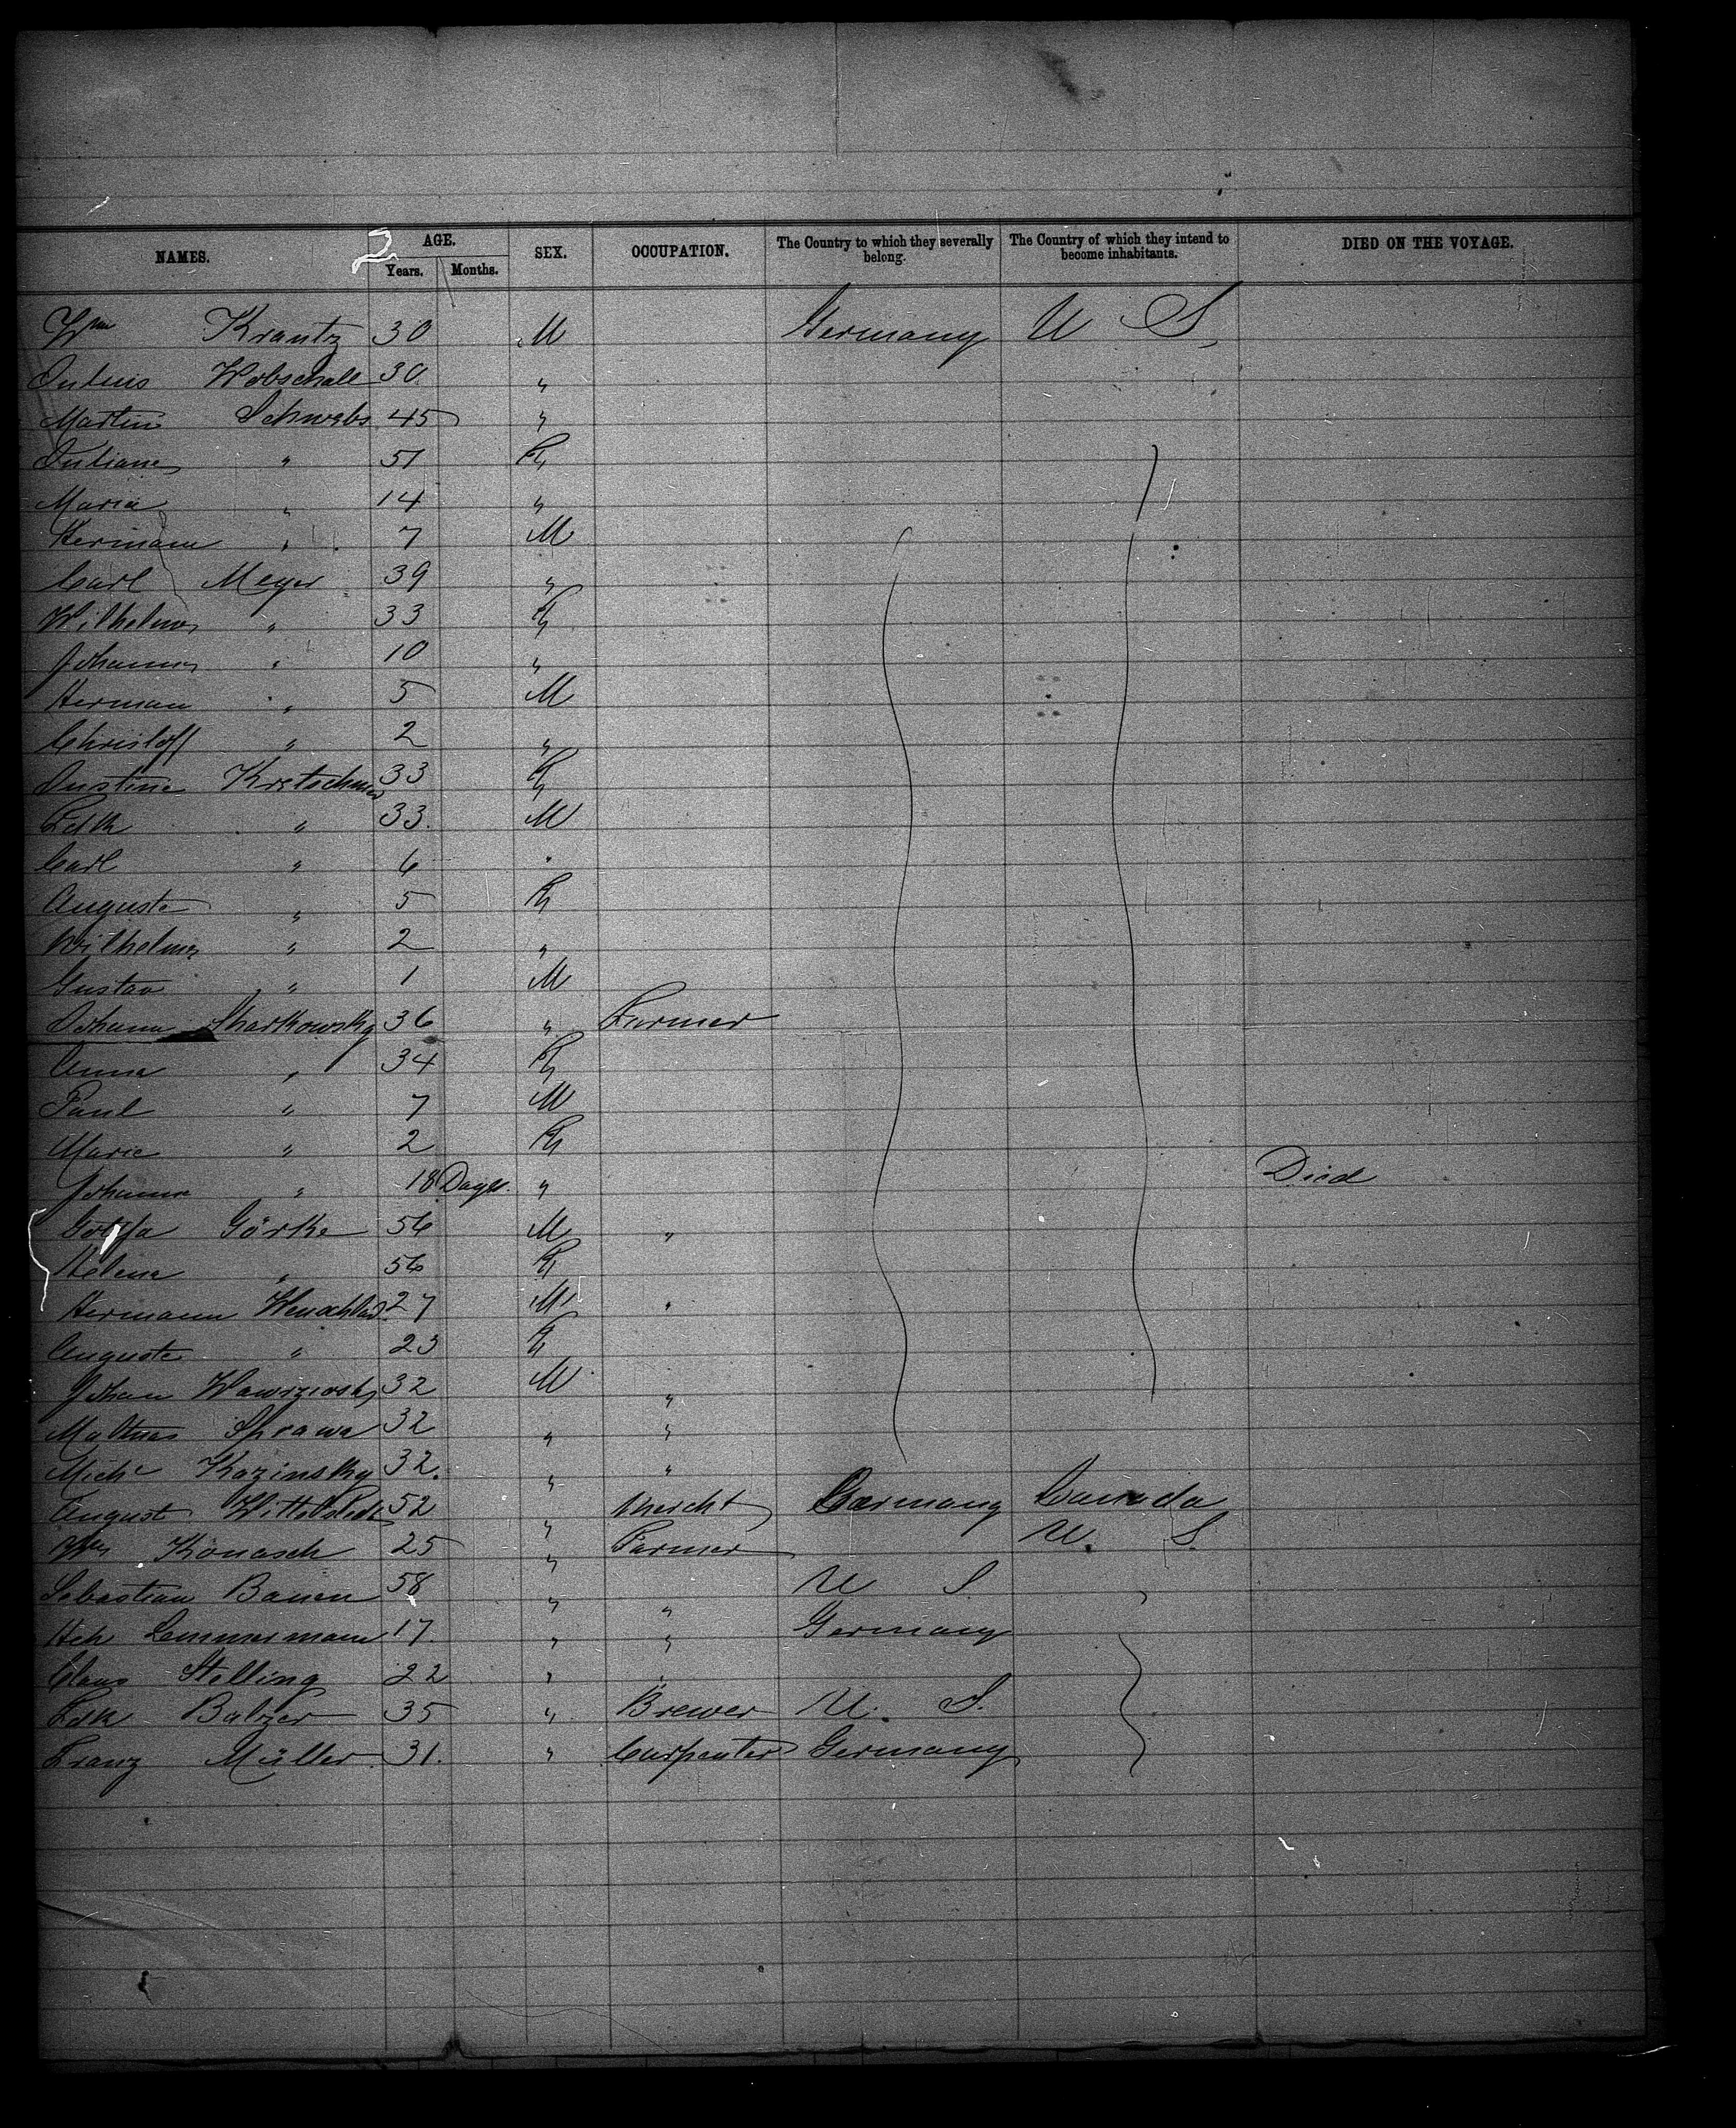 2
NAMES. AGE. SEX. OCCUPATION. The Country to which they severally belong. The Country of which they intend to become inhabitants. DIED ON THE VOYAGE.
Years. Months.
Wm Krantz 30 M Germany U S.
Julius Wobschall 30 "
Martin Schwebs 45 "
Juliane " 51 F
Maria " 14 "
Hermann " 7 M
Carl Meyer 39 "
Wilhelme " 33 F
Johanne " 10 "
Herman " 5 M
Christoff " 2 "
Justine Kretschmer 33 F
Fdk " 33. M
Carl " 6 "
Auguste " 5 F
Wilhelme " 2 "
Gustav " 1 M
Johann Sharkowsky 36 " Farmer
Anna " 34 F
Paul " 7 M
Marie " 2 F
Johanna " 18 Days. " Died
Görke 56 M "
Helene " 56 F
Hermann 27 M "
Auguste " 23 F
Johan 32 M "
Mathias Sprawa 32 " "
Michl Kozinsky 32. " "
August 52 " Mercht Germany Canada
Wm Könasch 25 " Farmer U. S.
Sebastian Bauen 58 " " U S
Hch Lemmermann 17. " " Germany
Claus Stelling 22 " "
Fdk Balzer 35 " Brewer U. S.
Franz Müller 31. " Carpenter Germany